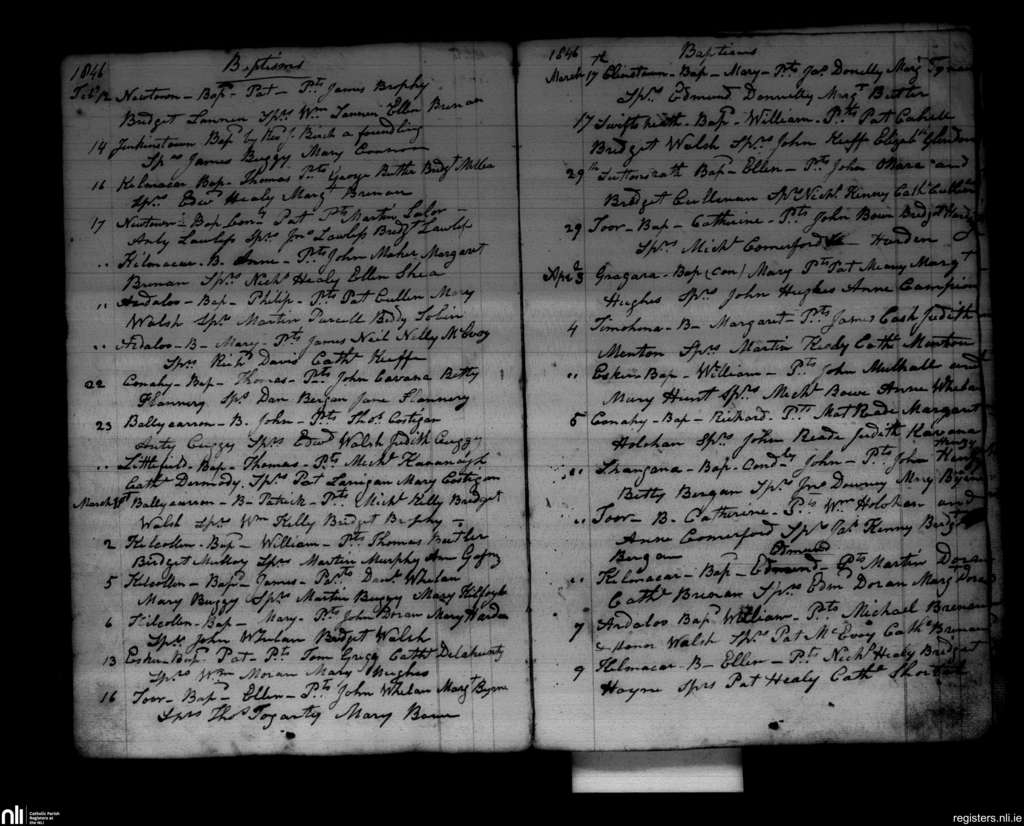 1846 Baptisms
Feb 12 Newtown - Bap - Pat - Pts James Brophy
Bridget Lawren Sprs Wm Lawren Ellen Brenan
14 Jenkinstown Bap by Revd J. Birch a foundling
Sprs James Buggy Mary Connor
16 Kilmacar Bap - Thomas Pts George Butler Bridgt Millea
Sprs Edwd Healy Margt Brenan
17 Newtown - Bap Con. Pat Pts Martin Lalor
Anty Lawless Sprs Jno Lawless Bridgt Lawless
" Kilmacar - B. Anne - Pts John Maher Margaret
Brenan Sprs Nichs Healy Ellen Shea
" Ardaloo - Bap - Philip - Pts Pat Cullen Mary
Walsh Sprs Martin Purcell Biddy Tobin
" Ardaloo - B - Mary - Pts James Neil Nelly McEvoy
Sprs Richd Davis Cathe Keeffe
22 Conahy - Bap - Thomas - Pts John Cavana Betty
Flannery Sprs Dan Bergan Jane Flannery
23 Ballycarron - B. John - Pts Thos Costigan
Anty Cuggy Sprs Edwd Walsh Judith Cuggy
" Littlefield - Bap - Thomas - Pts Michl Kavanagh
Cathe Dermody. Sprs Pat Lanigan Mary Costigan
March 1st Ballycarron - B - Patrick - Pts Michl Kelly Bridget
Walsh Sprs Wm Kelly Bridget Brophy
2 Kilcollen - Bap - William - Pts Thomas Butler
Bridget Sprs Martin Murphy Ann
5 Kilcollen - Bap - James - Pts Danl Whelan
Mary Buggy Sprs Martin Buggy Mary Kilfoyle
6 Kilcollen - Bap - Mary - Pts John Doran Mary Harden
Sprs John Whelan Bridget Walsh
13 Esker - Bap - Pat - Pts Tom Gregg Cathe Delahunty
Sprs Wm Moran Mary Hughes
16 Toor - Bap - Ellen - Pts John Whelan Margt Byrne
Sprs Thos Fogarty Mary Bowe
1846 Baptisms
March 17th - Bap - Mary - Pts Jas Donelly Margt
Sprs Edmund Donnelly Margt Butler
17 Swiftsheath - Bap - William - Pts Pat Cahill
Bridget Walsh Sprs John Keeff Elizth Glendon
29th Suttonsrath Bap - Ellen - Pts John OMara and
Bridget Cullenan Sprs Nichs Kenny Cathe
29 Toor - Bap - Catherine - Pts John Bowe Bridgt
Sprs Michl Comerford Harden
Apr 3 Gragara - Bap (Con) Mary Pts Pat Meany Margt
Hughes Sprs John Hughes Anne Campion
4 Timohona - B - Margaret - Pts James Cash Judith
Menton Sprs Martin Kiedy Cathe Menton
" Esker - Bap - William - Pts John Mulhall and
Mary Hunt Sprs Michl Bowe Anne Whelan
5 Conahy - Bap - Richard. Pts Mat Reade Margaret
Holohan Sprs John Reade Judith Kavana
" Shangana - Bap - Condly John - Pts John Henzy
Betty Bergan Sprs Jno Downey Mary Byrne
" Toor - B. Catherine - Pts Wm Holohan and
Anne Comerford Sprs Pat Kenny Bridgt
Bergan
" Kilmacar - Bap - Edmund - Pts Martin Doran
Cathe Brenan Sprs Edmd Doran Margt Doran
7 Ardaloo Bap William - Pts Michael Brenan
& Honor Walsh Sprs Pat McEvoy Cathe Brenan
9 Kilmacar - B - Ellen - Pts Nichs Healy Bridget
Hayne Sprs Pat Healy Cathe Shortal
nli Catholic Parish
Registers at
the NLI
registers.nli.ie